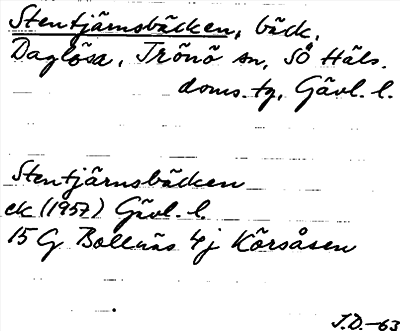 Stentjärnsbäcken, bäck,
Daglösa, Trönö sn, SÖ Häls.
doms. tg, Gävl. l.
Stentjärnsbäcken
ek (1957) Gävl. l.
15 G Bollnäs 4 j Körsåsen
J.D.-63